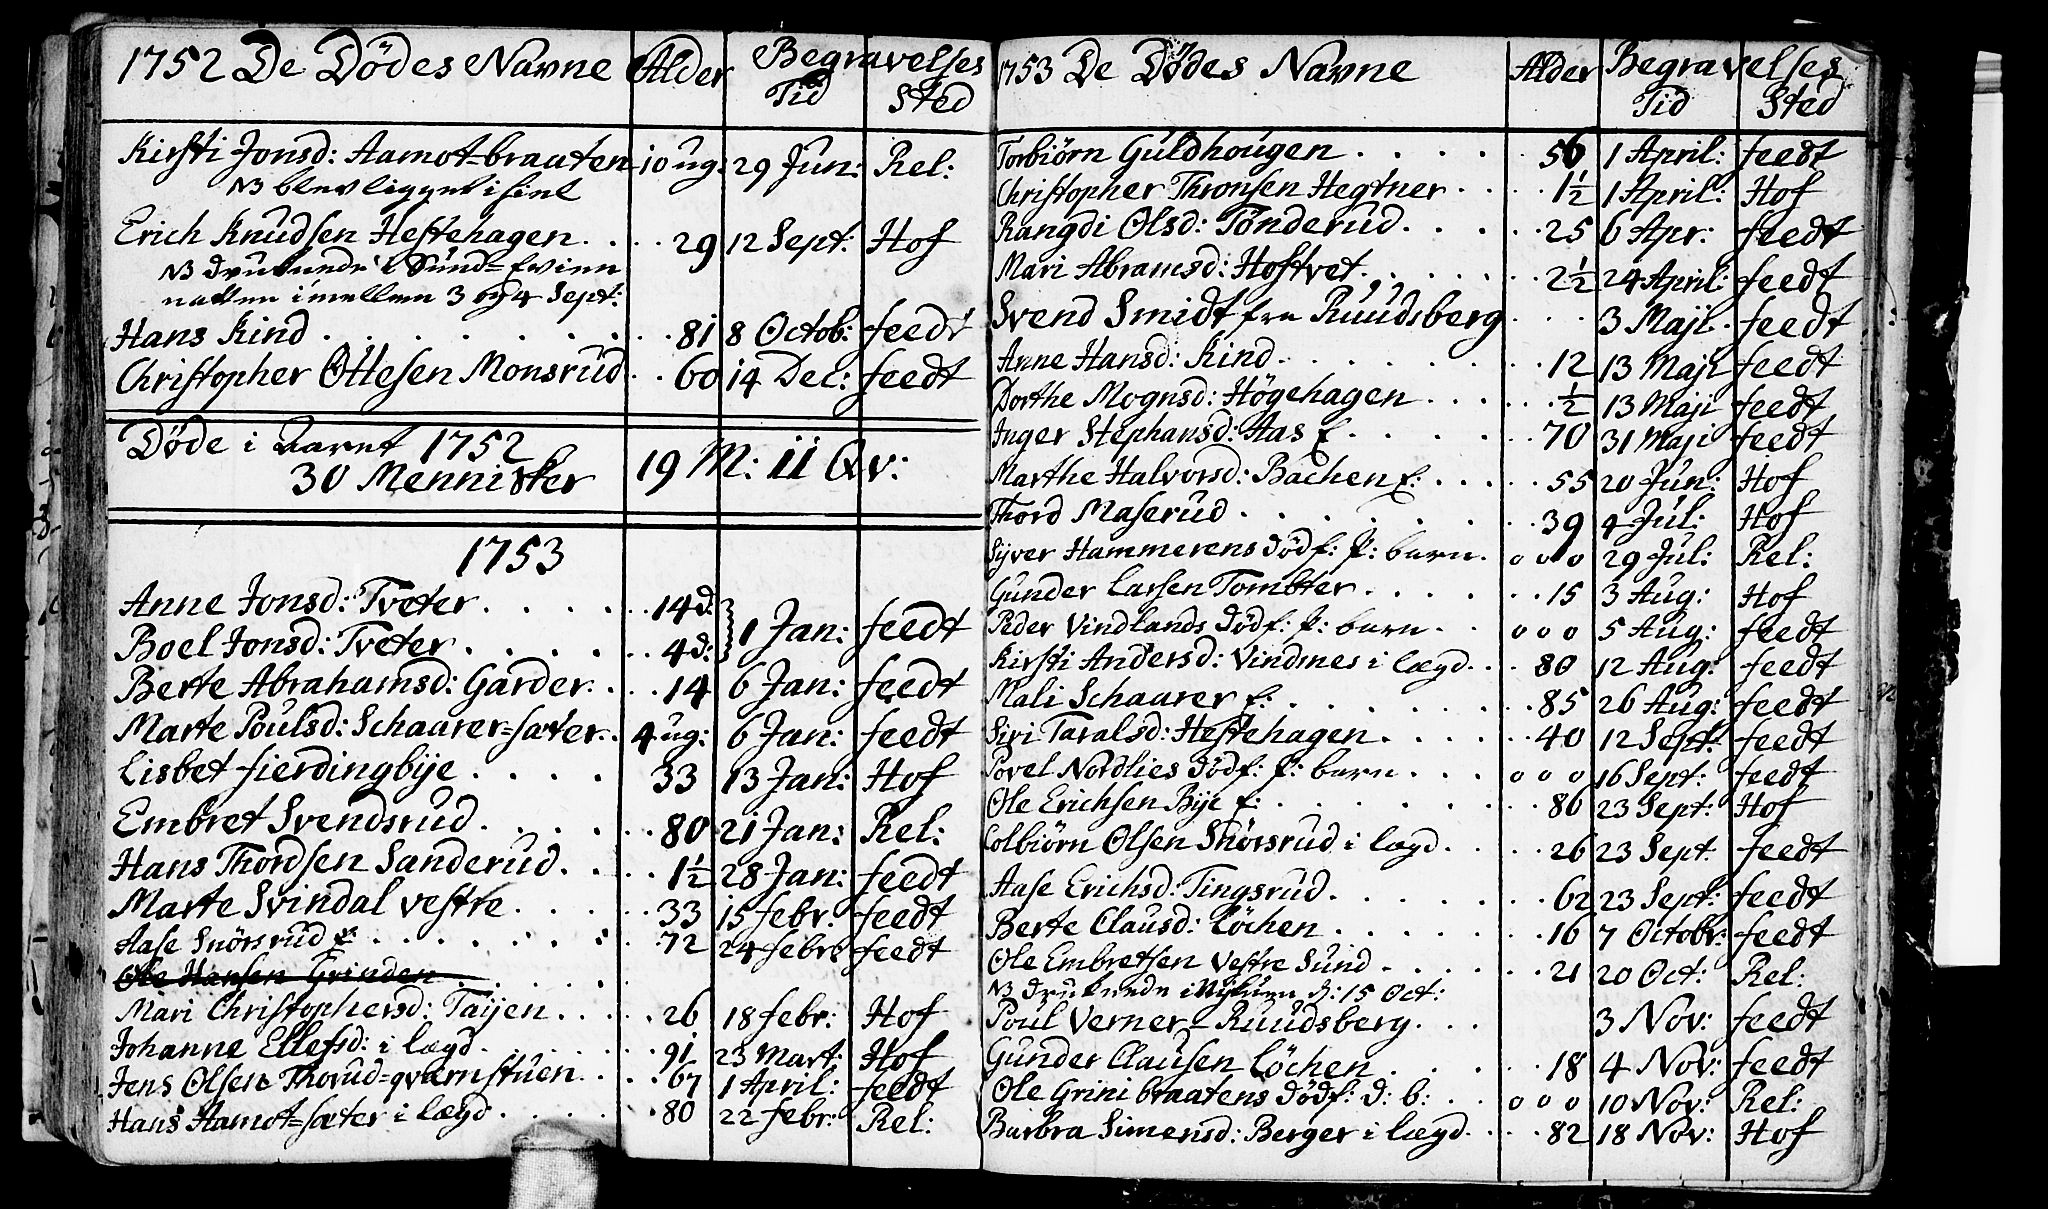 1752 De Dödes Navne Alder Begravelses
Tid Sted
Kirsti Jonsd: Aamot=braaten 10 ug. 29 Jun: Rel:
NB blev ligget ihiel
Erich Knudsen Hestehagen. . . . 29 12 Sept: Hof
NB druknede i Sund=Evien
natten imellem 3 og 4 Sept:
Hans Kind . . . . . . . . 81 8 Octob: feedt
Christopher Ottesen Monsrud . . 60 14 Dec: feedt
Döde i Aaret 1752
30 Mennisker 19 M: 11 Qv:
1753
Anne Jonsd: Tveter . . . . . . 14 d:
1 Jan: feedt
Boel Jonsd: Tveter . . . . . . 4 d:
Berte Abrahamsd: Garder. . . . 14 6 Jan: feedt
Marte Poulsd: Schaarer=sæter. . 4 ug: 6 Jan: feedt
Lisbet fierdingbÿe . . . . 33 13 Jan: Hof
Embret Svendsrud . . . . . . 80 21 Jan: Rel:
Hans Thordsen Sanderud. . . . 1½ 28 Jan: feedt
Marte Svindal vestre . . . . . 33 15 febr: feedt
Aase Snörsrud E: . . . . . . . 72 24 febr: feedt
Ole Hansen Grinden . . . . . .
Mari Christophersd: Taÿen . . . . 26 18 febr: Hof
Johanne Ellefsd: i lægd . . . . . . 91 23 Mart: Hof
Jens Olsen Thorud=qværnstuen. . . . 67 1 April: feedt
Hans Aamot=sæter i lægd . . . . . . 80 22 febr: Rel:
1753 De Dödes Navne Alder Begravelses
Tid Sted
Torbiörn Guldhougen . . . . . . 56 1 April: feedt
Christopher Thronsen Hegtner . . . . 1½ 1 April: Hof
Rangdi Olsd: Tonderud . . . . . . 25 6 Apr: feedt
Mari Abramsd: Hoftvet . . . . . . 2½ 24 April: feedt
Svend Smidt fra Ruudsberg . . . 3 Maji . feedt
Anne Hansd: Kind . . . . . . . 12 13 Maji feedt
Dorthe Mognsd: Högehagen . . . . . . ½ 13 Maji feedt
Inger Stephansd: Aas E . . . . . . 70 31 Maji feedt
Marthe Halvorsd: Bachen E: . . . . . 55 20 Jun: Hof
Thord Maserud . . . . . . . . 39 4 Jul: Hof
Sÿver Hammerens Dödf: P: barn . o o o 29 Jul: Rel:
Gunder Larsen Tombter . . . . . . 15 3 Aug: Hof
Peder Vindlands Dödf: P: barn . . o o o 5 Aug: feedt
Kirsti Andersd: Vindnes i lægd . . . 80 12 Aug: feedt
Mali Schaarer E: . . . . . . . . 85 26 Aug: feedt
Siri Taralsd: Hestehagen . . . . . . 40 12 Sept: feedt
Povel Nordlies Dödf: P: barn . . . o o o 16 Sept: feedt
Ole Erichsen Bÿe E: . . . . . . . 86 23 Sept: Hof
Colbiörn Olsen Snörsrud i lægd . . . . . 26 23 Sept: feedt
Aase Erichsd: Tingsrud . . . . . . . 62 23 Sept: feedt
Berte Clausd: Löchen . . . . . . . 16 7 Octobr: feedt
Ole Embretsen Vestre Sund . . . . . . 21 20 Oct: Rel:
NB druknede i d: 15 Oct:
Poul Verner=Ruudsberg. . . . 3 Nov: feedt
Gunder Clausen Löchen . . . . . . 18 4 Nov: feedt
Ole Grinibraatens Dödf: d: b: . . o o o 10 Nov: Rel:
Barbra Simensd: Berger i lægd . . . . 82 18 Nov: Hof